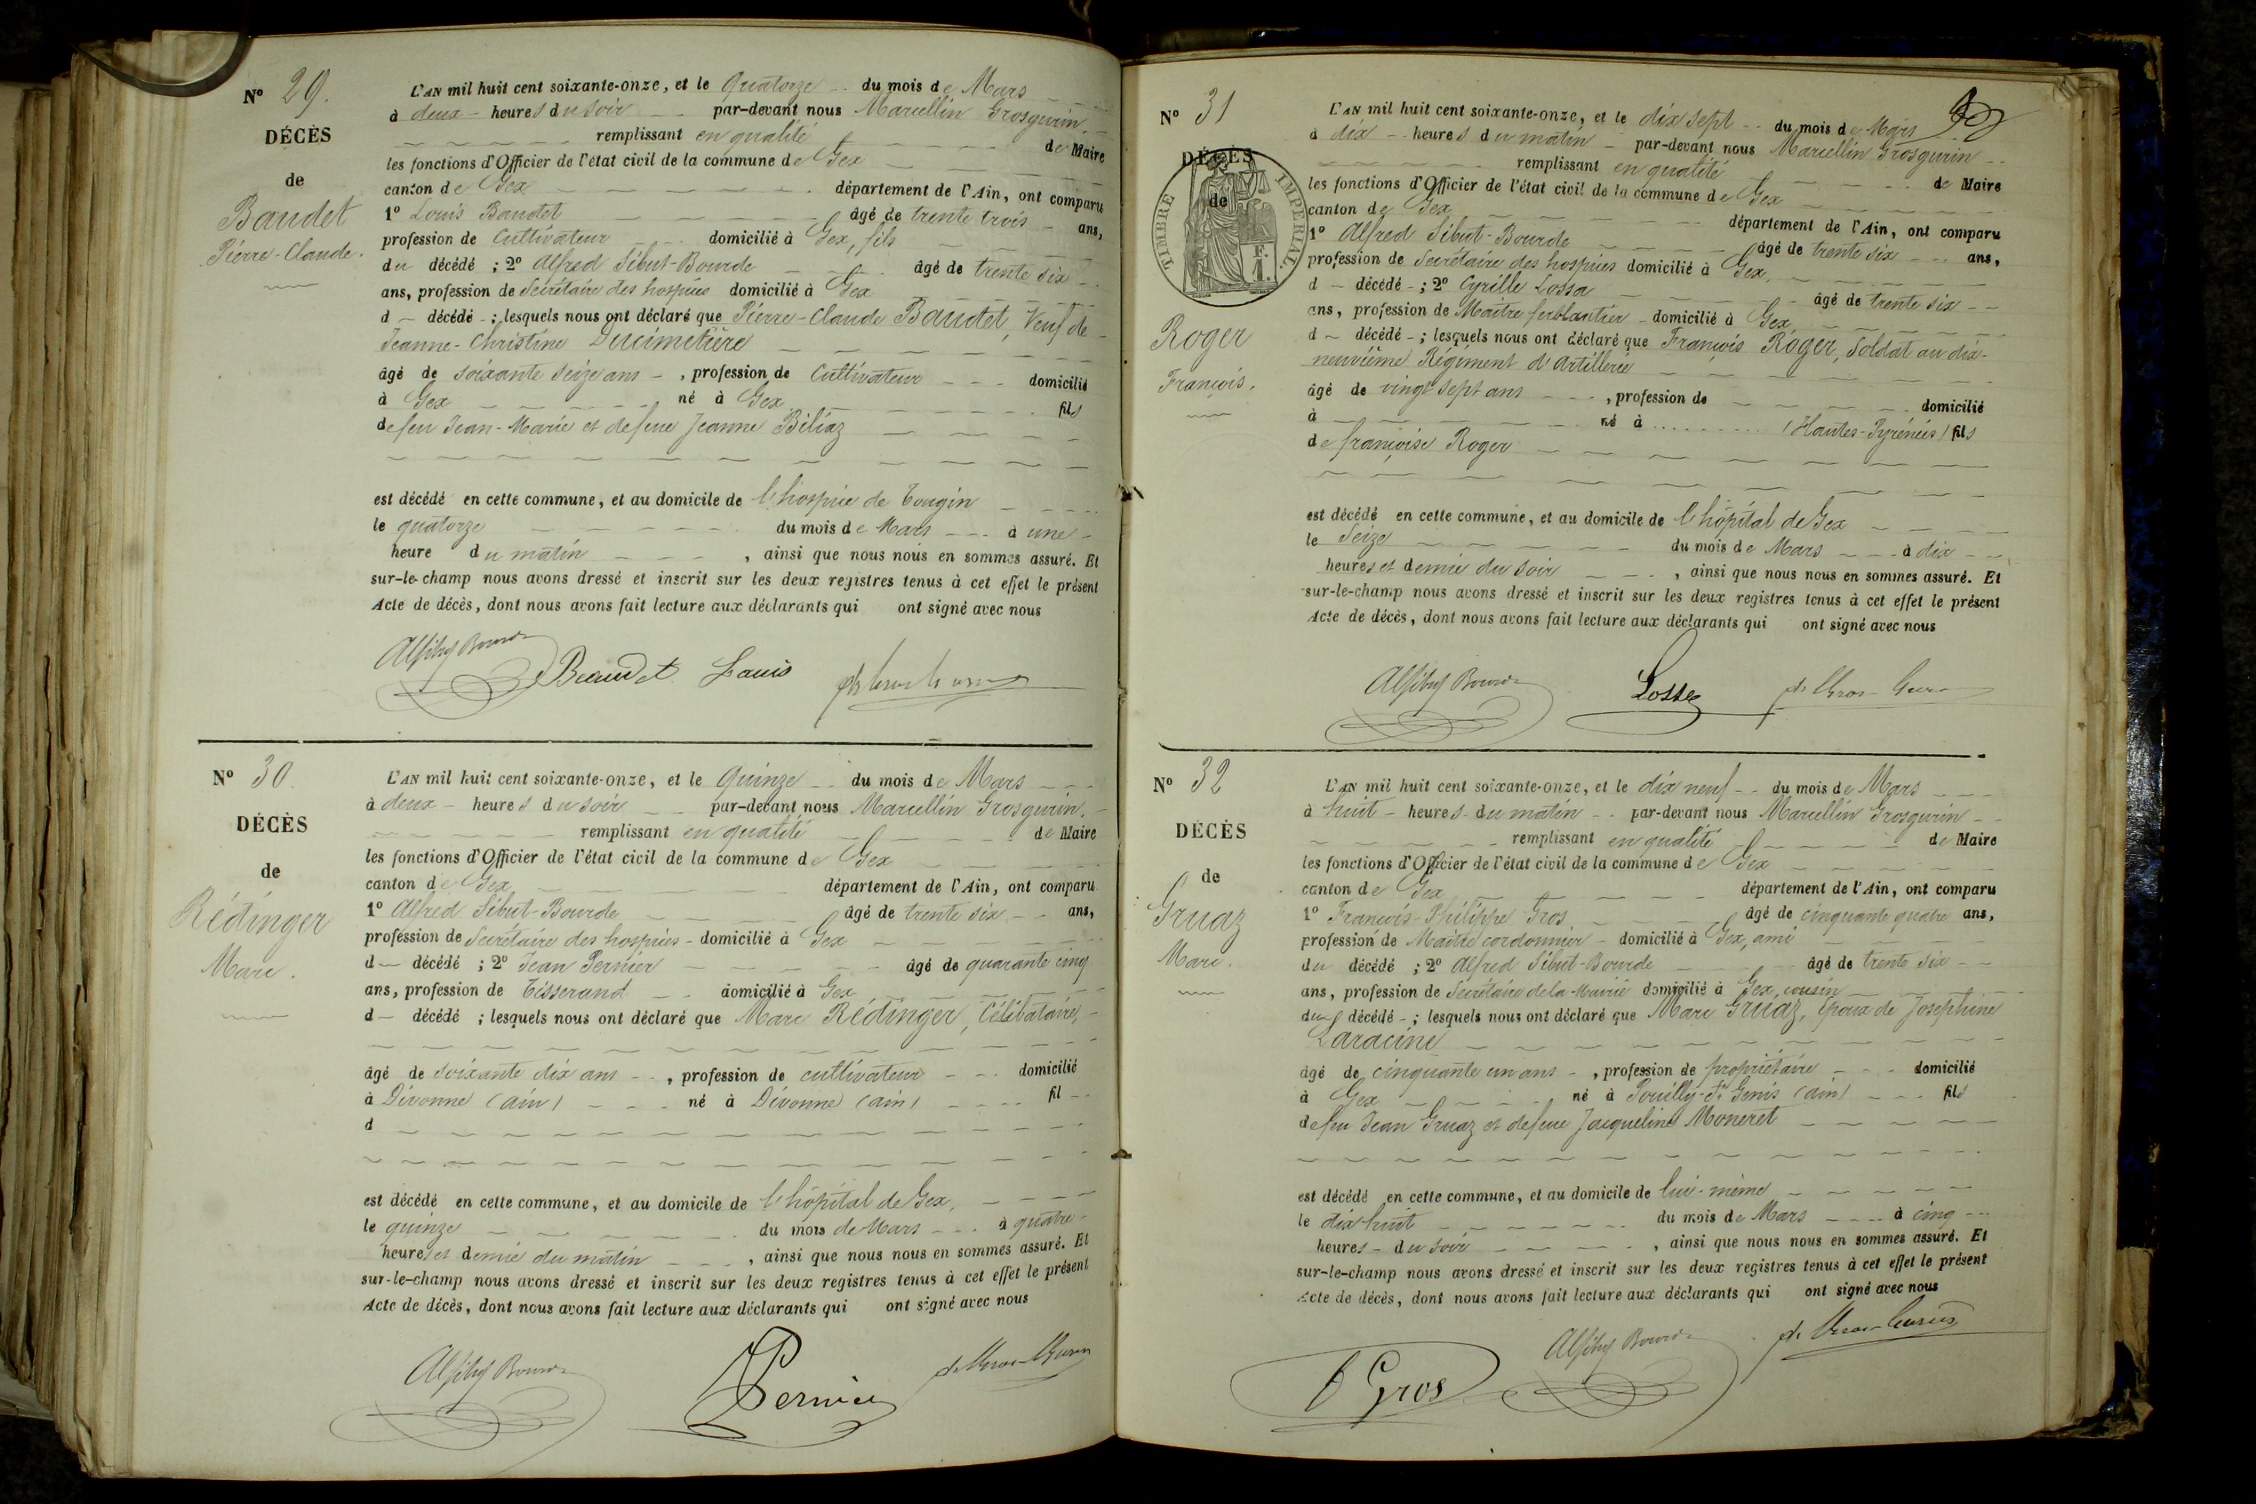 N° 29.
DÉCÈS
de
Baudet
Pierre-Claude.
L'AN mil huit cent soixante-onze, et le Quatorze du mois de Mars
à deux heures du soir par-devant nous Marcellin Grosgurin,
remplissant en qualité de Maire
les fonctions d'Officier de l'état civil de la commune de Gex
canton de Gex département de l'Ain, ont comparu
1° Louis Baudet âgé de trente trois ans,
profession de Cultivateur domicilié à Gex, fils
du décédé ; 2° Alfred Sibut-Bourde âgé de trente six
ans, profession de Secrétaire des hospices domicilié à Gex
d décédé ; lesquels nous ont déclaré que Pierre-Claude Baudet, Veuf de
Jeanne-Christine Ducimetière
âgé de soixante seize ans, profession de Cultivateur domicilié
à Gex né à Gex fils
de feu Jean-Marie et de feue Jeanne Biliaz
est décédé en cette commune, et au domicile de l'hospice de Tougin
le quatorze du mois de Mars à une
heure du matin, ainsi que nous nous en sommes assuré. Et
sur-le-champ nous avons dressé et inscrit sur les deux registres tenus à cet effet le présent
Acte de décès, dont nous avons fait lecture aux déclarants qui ont signé avec nous
Baudet Louis
N° 30.
DÉCÈS
de
Rédinger
Marc.
L'AN mil huit cent soixante-onze, et le Quinze du mois de Mars
à deux heures du soir par-devant nous Marcellin Grosgurin,
remplissant en qualité de Maire
les fonctions d'Officier de l'état civil de la commune de Gex
canton de Gex département de l'Ain, ont comparu
1° Alfred Sibut-Bourde âgé de trente six ans,
profession de Secrétaire des hospices domicilié à Gex
d décédé ; 2° Jean Pernier âgé de quarante cinq
ans, profession de Tisserand domicilié à Gex
d décédé ; lesquels nous ont déclaré que Marc Rédinger, Célibataire,
âgé de soixante dix ans, profession de cultivateur domicilié
à Divonne (ain) né à Divonne (ain) fil
d
est décédé en cette commune, et au domicile de l'hôpital de Gex,
le quinze du mois de Mars à quatre
heures et demie du matin, ainsi que nous nous en sommes assuré. Et
sur-le-champ nous avons dressé et inscrit sur les deux registres tenus à cet effet le présent
Acte de décès, dont nous avons fait lecture aux déclarants qui ont signé avec nous
Pernier
N° 31
DÉCÈS
de
TIMBRE IMPÉRIAL
F.
1.
Roger
François.
L'AN mil huit cent soixante-onze, et le dix sept du mois de Mars
à dix heures du matin par-devant nous Marcellin Grosgurin
remplissant en qualité de Maire
les fonctions d'Officier de l'état civil de la commune de Gex
canton de Gex département de l'Ain, ont comparu
1° Alfred Sibut-Bourde âgé de trente six ans,
profession de Secrétaire des hospices domicilié à Gex,
d décédé ; 2° Cyrille Lossa âgé de trente six
ans, profession de Maître ferblantier domicilié à Gex
d décédé ; lesquels nous ont déclaré que François Roger, Soldat au dix-
neuvième Régiment d'Artillerie
âgé de vingt sept ans, profession de domicilié
à né à .......... (Hautes-Pyrénées) fils
de françoise Roger
est décédé en cette commune, et au domicile de l'hôpital de Gex
le Seize du mois de Mars à dix
heures et demie du soir, ainsi que nous nous en sommes assuré. Et
sur-le-champ nous avons dressé et inscrit sur les deux registres tenus à cet effet le présent
Acte de décès, dont nous avons fait lecture aux déclarants qui ont signé avec nous
N° 32
DÉCÈS
de
Gruaz
Marc.
L'AN mil huit cent soixante-onze, et le dix neuf du mois de Mars
à huit heures du matin par-devant nous Marcellin Grosgurin
remplissant en qualité de Maire
les fonctions d'Officier de l'état civil de la commune de Gex
canton de Gex département de l'Ain, ont comparu
1° François-Philippe Gros âgé de cinquante quatre ans,
profession de Maître cordonnier domicilié à Gex, ami
du décédé ; 2° Alfred Sibut-Bourde âgé de trente six
ans, profession de Secrétaire de la Mairie domicilié à Gex, cousin
du décédé ; lesquels nous ont déclaré que Marc Gruaz, époux de Josephine
Laracine
âgé de cinquante un ans, profession de propriétaire domicilié
à Gex né à Pouilly-St Genis (ain) fils
de feu Jean Gruaz et de feue Jacqueline Moneret
est décédé en cette commune, et au domicile de lui-même
le dix huit du mois de Mars à cinq
heures du soir, ainsi que nous nous en sommes assuré. Et
sur-le-champ nous avons dressé et inscrit sur les deux registres tenus à cet effet le présent
Acte de décès, dont nous avons fait lecture aux déclarants qui ont signé avec nous
Gros